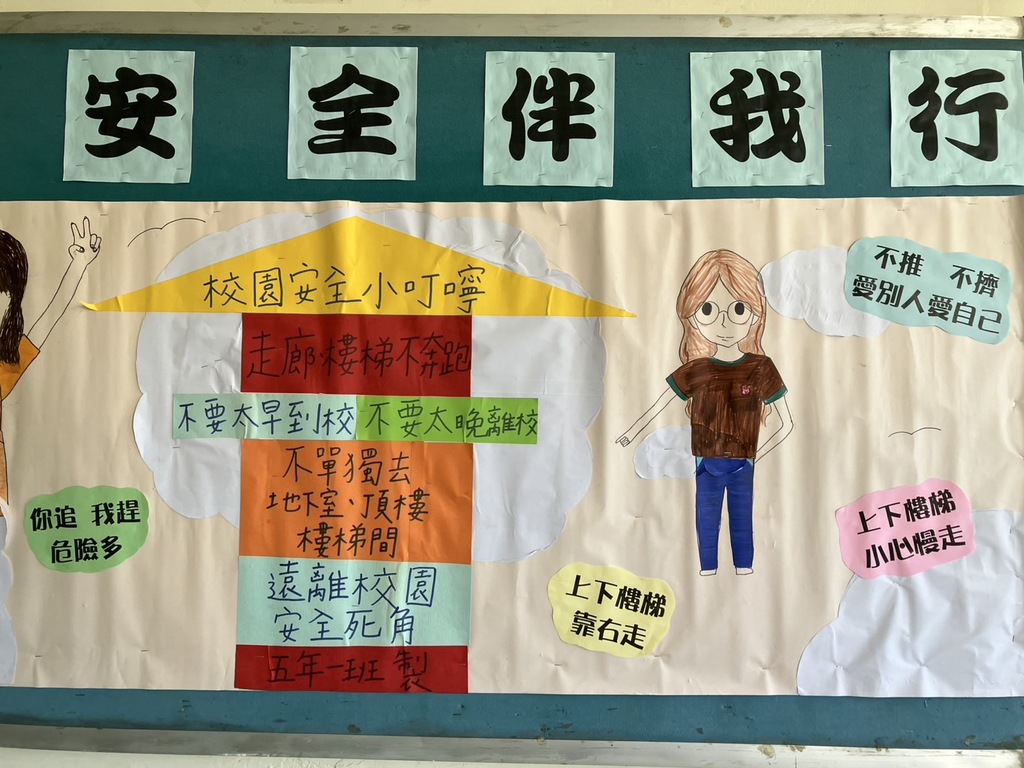 安全伴我行
校園安全小叮嚀
走廊樓梯不奔跑
不要太早到校 不要太晚離校
不單獨去
地下室、頂樓
樓梯間
遠離校園
安全死角
五年一班 製
你追 我趕
危險多
上下樓梯
靠右走
不推 不擠
愛別人愛自己
上下樓梯
小心慢走